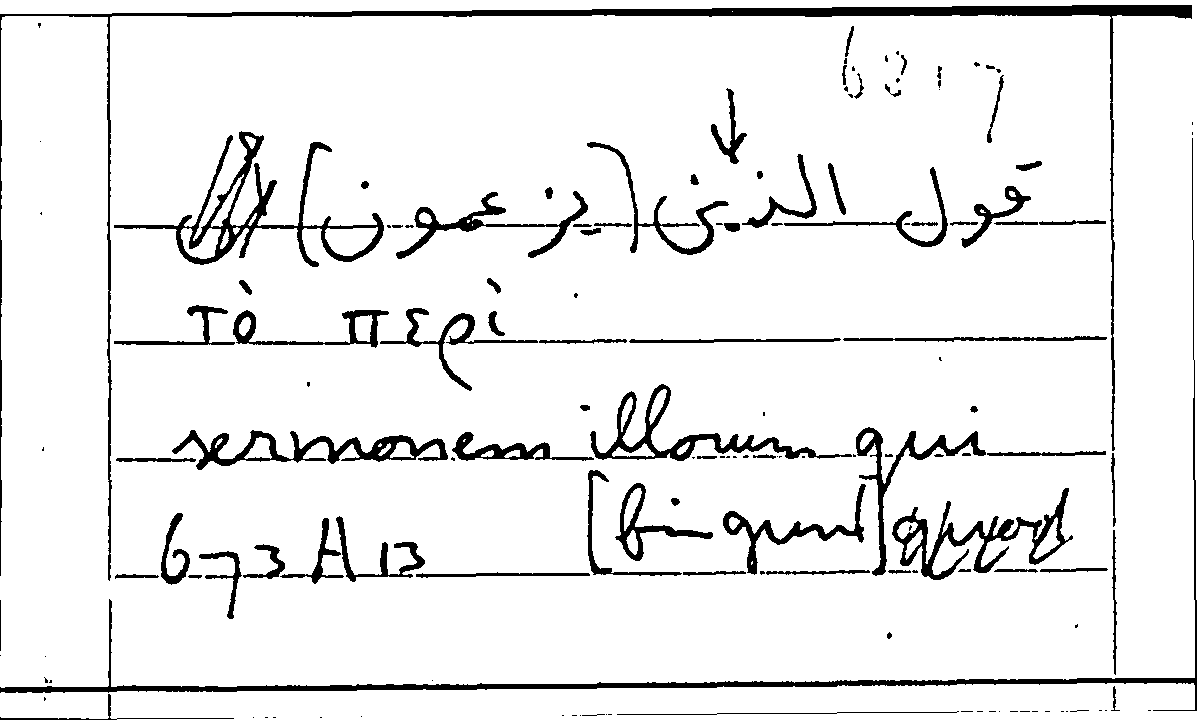 6217
قول الذين (يزعمون)
τὸ περὶ
sermonem illorum qui
[fingunt]
673 A 13